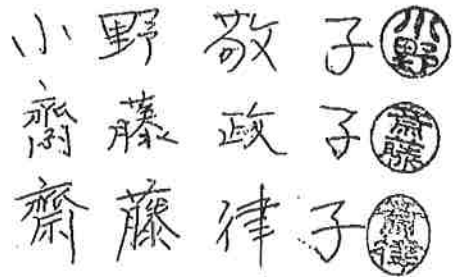 小野 敬子 小野
齋藤 政子 斎藤
齋藤 律子